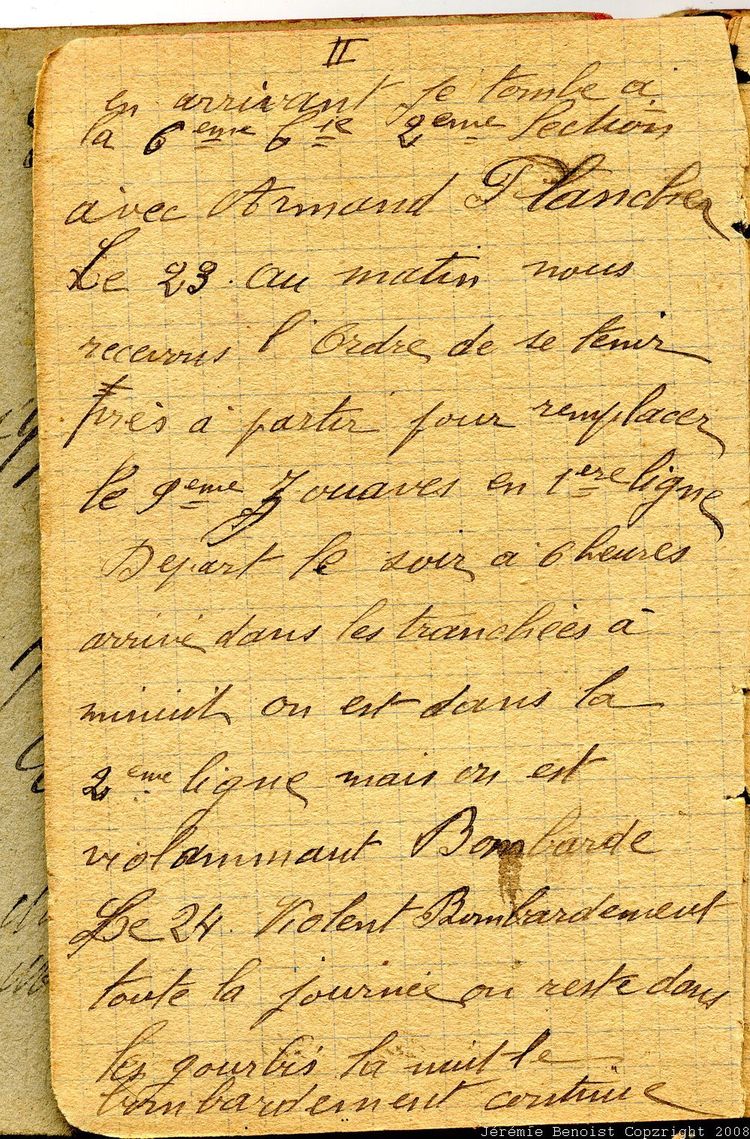 II
en arrivant je tombe a
la 6eme Cie 2eme Section
avec Armand Plancher
Le 23. au matin nous
recevons l'Ordre de se tenir
près a partir pour remplacer
le 9eme Zouaves en 1ere ligne
Depart le soir a 6 heures
arrivé dans les tranchées à
minuit on est dans la
2eme ligne mais on est
violammant Bombarde
Le 24. Violent Bombardement
toute la journée on reste dans
les gourbis la nuit le
bombardement continue
Jérémie Benoist Copzright 2008